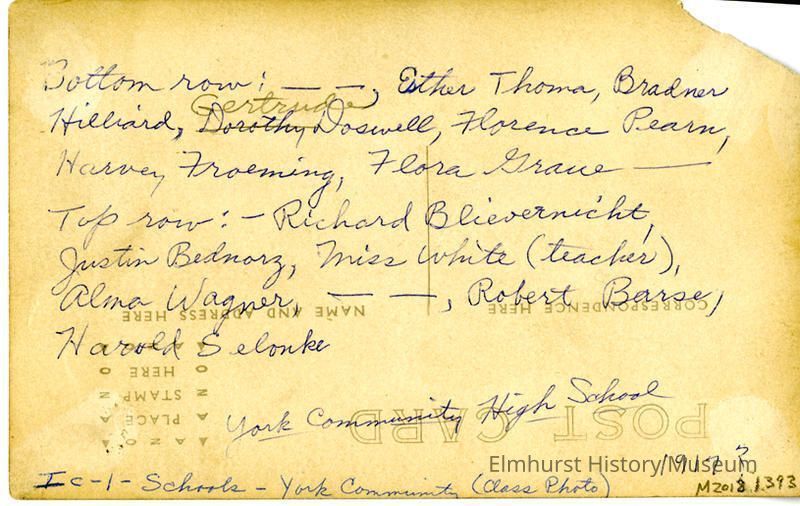 Bottom row: — —, Esther Thoma, Bradner
Gertrude
Hilliard, Dorothy Doswell, Florence Pearn,
Harvey Froeming, Flora Graue —
Top row: - Richard Blievernicht,
Justin Bednarz, Miss White (teacher),
Alma Wagner, — —, Robert Barse,
NAME AND ADDRESS HERE
CORRESPONDENCE HERE
Harold Selonke
AZO
PLACE
STAMP
HERE
POST CARD
York Community High School
Elmhurst History Museum
191 ?
Ic-1- Schools - York Community (Class Photo)
M2013.1.393